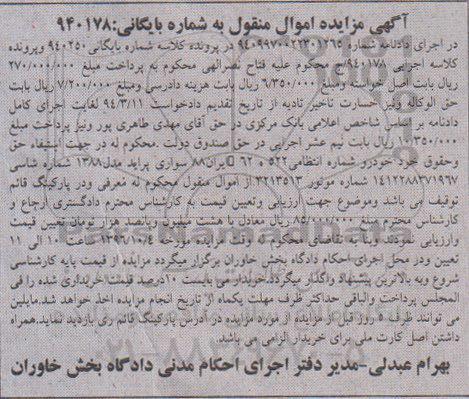 آگهی مزایده اموال منقول به شماره بایگانی:۹۴۰۱۷۸
در اجرای دادنامه شماره ۹۴۰۹۹۷۰۹۲۲۳۰۱۲۶۵ در پرونده کلاسه شماره بایگانی ۹۴۰۲۵۰ وپرونده
کلاسه اجرایی ۹۴۰۱۷۸/ج محکوم علیه فتاح نصرالهی محکوم به پرداخت مبلغ ۲۷۰/۰۰۰/۰۰۰
ریال بابت اصل خواسته ومبلغ ۶/۳۵۰/۰۰۰ ریال بابت هزینه دادرسی ومبلغ ۷/۲۰۰/۰۰۰ ریال بابت
حق الوکاله ونیز خسارت تاخیر تادیه از تاریخ تقدیم دادخواست ۹۴/۳/۱۱ لغایت اجرای کامل
دادنامه بر اساس شاخص اعلامی بانک مرکزی در حق آقای مهدی طاهری پور ونیز پرداخت مبلغ
۳۵۰/۰۰۰ ریال بابت نیم عشر اجرایی در حق صندوق دولت .محکوم له در جهت استیفاء حق
وحقوق خود خودرو شماره انتظامی ۵۲۲ و ۶۲ ایران۸۸ سواری پراید مدل۱۳۸۸ شماره شاسی
۱۴۱۲۲۸۸۳۷۱۹۶۷ شماره موتور ۳۲۱۳۵۱۳ از اموال منقول محکوم له معرفی ودر پارکینگ قائم
توقیف می باشد وموضوع جهت ارزیابی وتعیین قیمت به کارشناس محترم دادگستری ارجاع و
کارشناس محترم مبلغ ۸۵/۰۰۰/۰۰۰ ریال معادل با هشت میلیون وپانصد هزار تومان تعیین قیمت
وارزیابی نمودند وبنا به تقاضای محکوم له وقت مزایده مورخه ۱۳۹۶/۱۰/۴ ساعت ۱۰ الی ۱۱
تعیین ودر محل اجرای احکام دادگاه بخش خاوران برگزار میگردد مزایده از قیمت پایه کارشناسی
شروع وبه بالاترین پیشنهاد واگذار میگردد.خریدار می بایست ۱۰درصد قیمت خریداری شده را فی
المجلس پرداخت والباقی حداکثر ظرف مهلت یکماه از تاریخ انجام مزایده اخذ خواهد شد.مایلین
می توانند ظرف ۵ روز قبل از مزایده از مورد مزایده در آدرس پارکینگ قائم ری بازدید نماید.همراه
داشتن اصل کارت ملی برای خریدار الزامی می باشد.
بهرام عبدلی-مدیر دفتر اجرای احکام مدنی دادگاه بخش خاوران
ParsNamadData